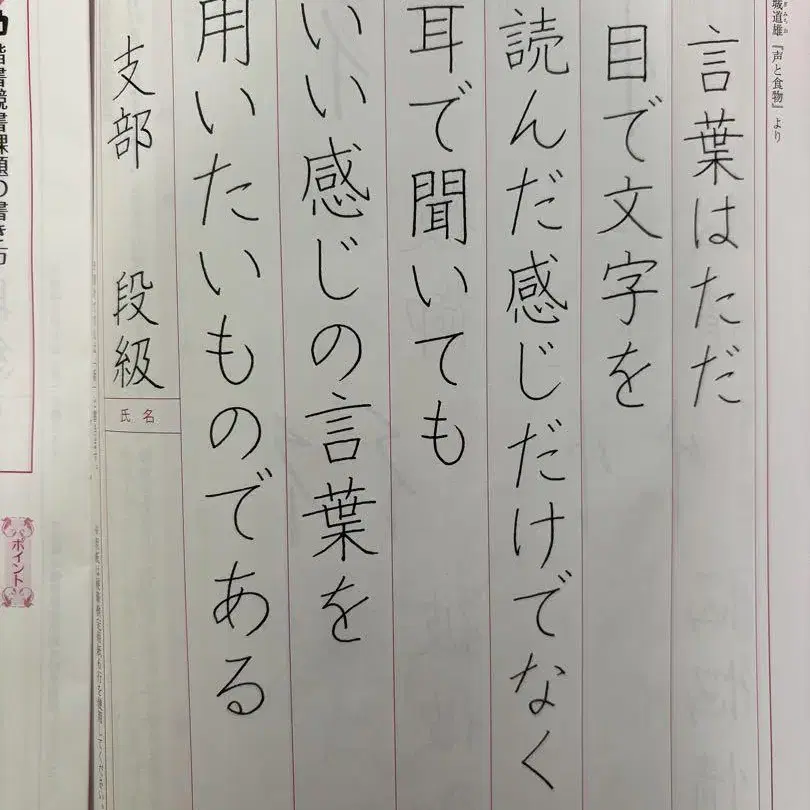 城道雄『声と食物』より
言葉はただ
目で文字を
読んだ感じだけでなく
耳で聞いても
いい感じの言葉を
用いたいものである
支部 段級
氏名
楷書競書課題の書き方
ポイント